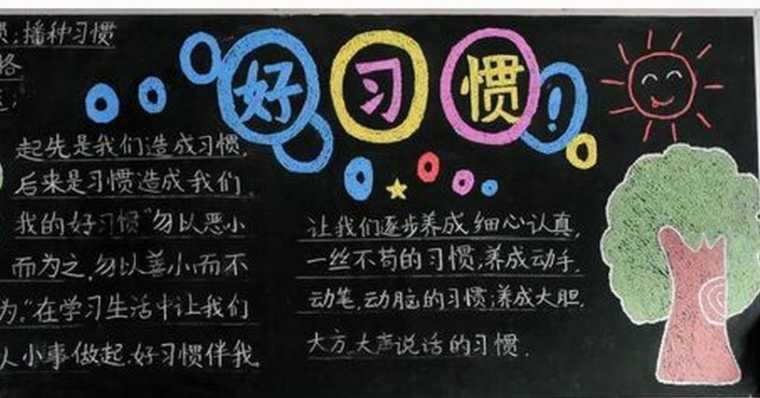 好习惯!
惯;播种习惯
格
起先是我们造成习惯,
后来是习惯造成我们。
我的好习惯"勿以恶小
而为之,勿以善小而不
为。"在学习生活中让我们
人小事做起.好习惯伴我
让我们逐步养成,细心认真,
一丝不苟的习惯,养成动手,
动笔,动脑的习惯;养成大胆.
大方大声说话的习惯.